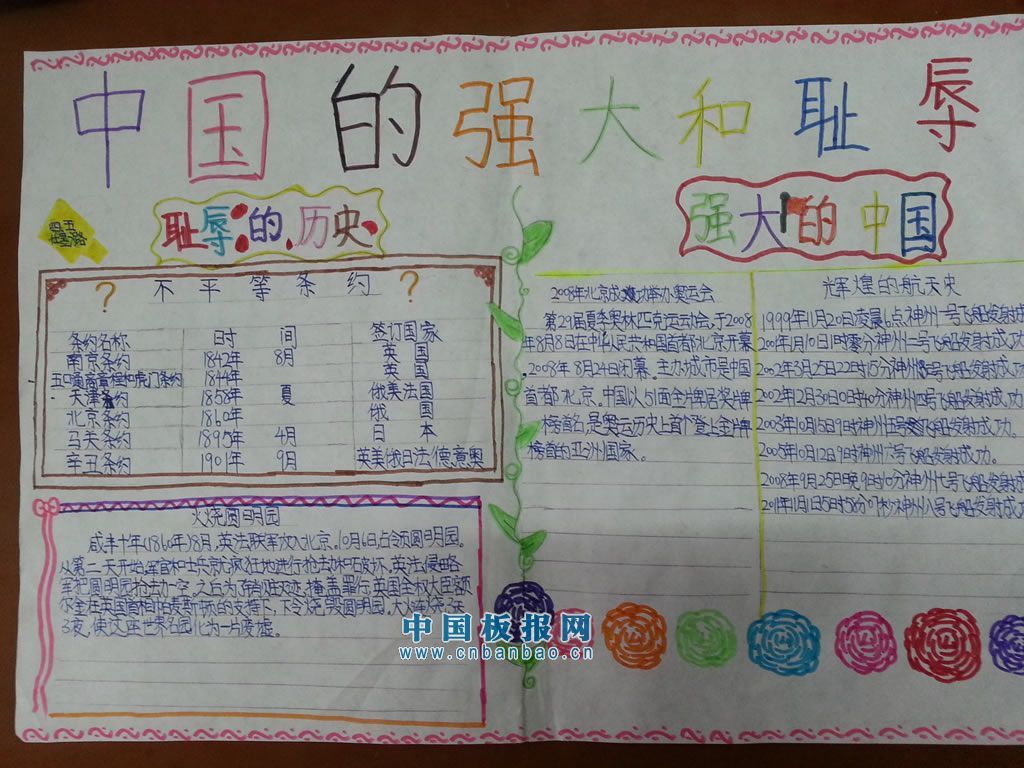 中国的强大和耻辱
耻辱的历史
? 不平等条约 ?
条约名称 时间 签订国家
南京条约 1842年 8月 英国
五口通商章程和虎门条约 1844年 英国
天津条约 1858年 夏 俄美法国
北京条约 1860年 俄国
马关条约 1895年 4月 日本
辛丑条约 1901年 9月 英美俄日法德意奥
火烧圆明园
咸丰十年(1860年)8月,英法联军攻入北京。10月6日占领圆明园。
从第二天开始,军官和士兵就疯狂地进行抢劫和破坏。英法侵略
军把圆明园抢劫一空之后,为
消赃灭迹,掩盖罪行,英国全权大臣额
尔金在英国首相
的支持下,下令烧毁圆明园。大火连烧三天
3夜,使这座世界名园化为一片废墟。
强大的中国
2008年北京成功举办奥运会
第29届夏季奥林匹克运动会,于2008
年8月8日在中华人民共和国首都北京开幕
,2008年8月24日闭幕。主办城市是中国
首都北京。中国以51面金牌居奖牌
榜首名,是奥运历史上首个登上金牌
榜首的亚洲国家。
辉煌的航天史
1999年11月20日凌晨6点神州一号飞船发射成
2001年1月10日1时零分神州二号飞船发射成功
2002年3月25日22时15分神州三号飞船发射成
2002年12月30日0时40分神州四号飞船发射成功
2003年10月15日9时神州五号飞船发射成功。
2005年10月12日9时神州六号飞船发射成功。
2008年9月25日晚9时10分神州七号飞船发射成功
2011年11月1日5时58分07秒神州八号飞船发射成功
中国板报网
www.cnbanbao.cn